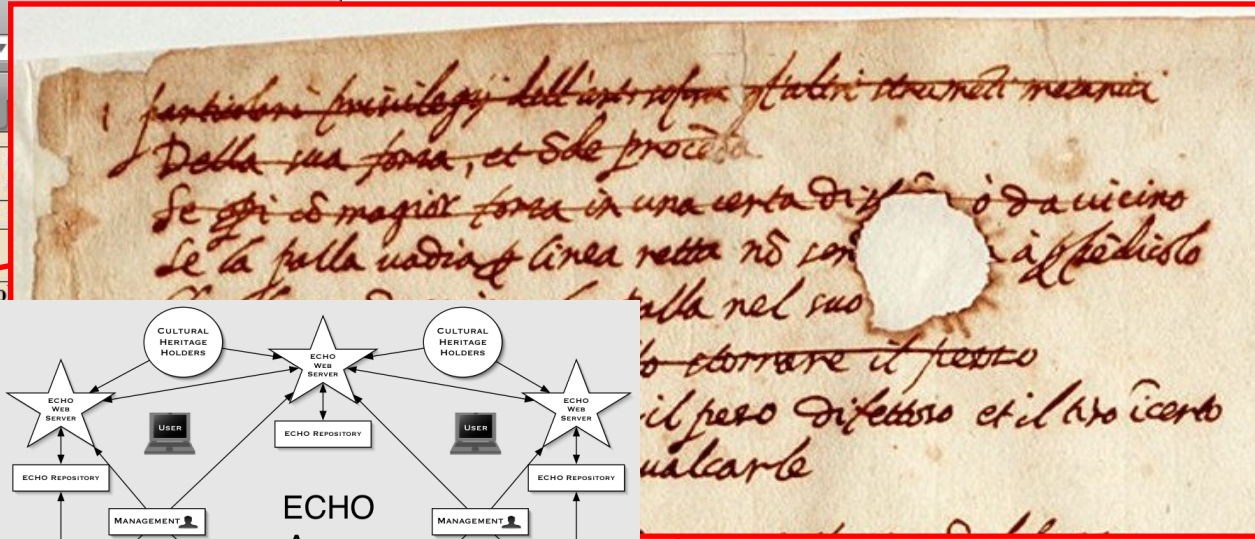 particolari privilegij dell'artⁱ sopra gl'altri strumēti mecanici
Della sua forza, et ōde proceda
Se opi cō magior forza in una certa dist ò da vicino
Se la palla uadia p linea retta nō sen à ppēdicolo
palla nel suo
stornare il pezzo
il pezo difettoso et il tiro īcerto
ualcarle
CULTURAL
HERITAGE
HOLDERS
CULTURAL
HERITAGE
HOLDERS
ECHO
WEB
SERVER
ECHO
WEB
SERVER
ECHO
WEB
SERVER
USER
USER
ECHO REPOSITORY
ECHO REPOSITORY
ECHO REPOSITORY
MANAGEMENT
ECHO
MANAGEMENT